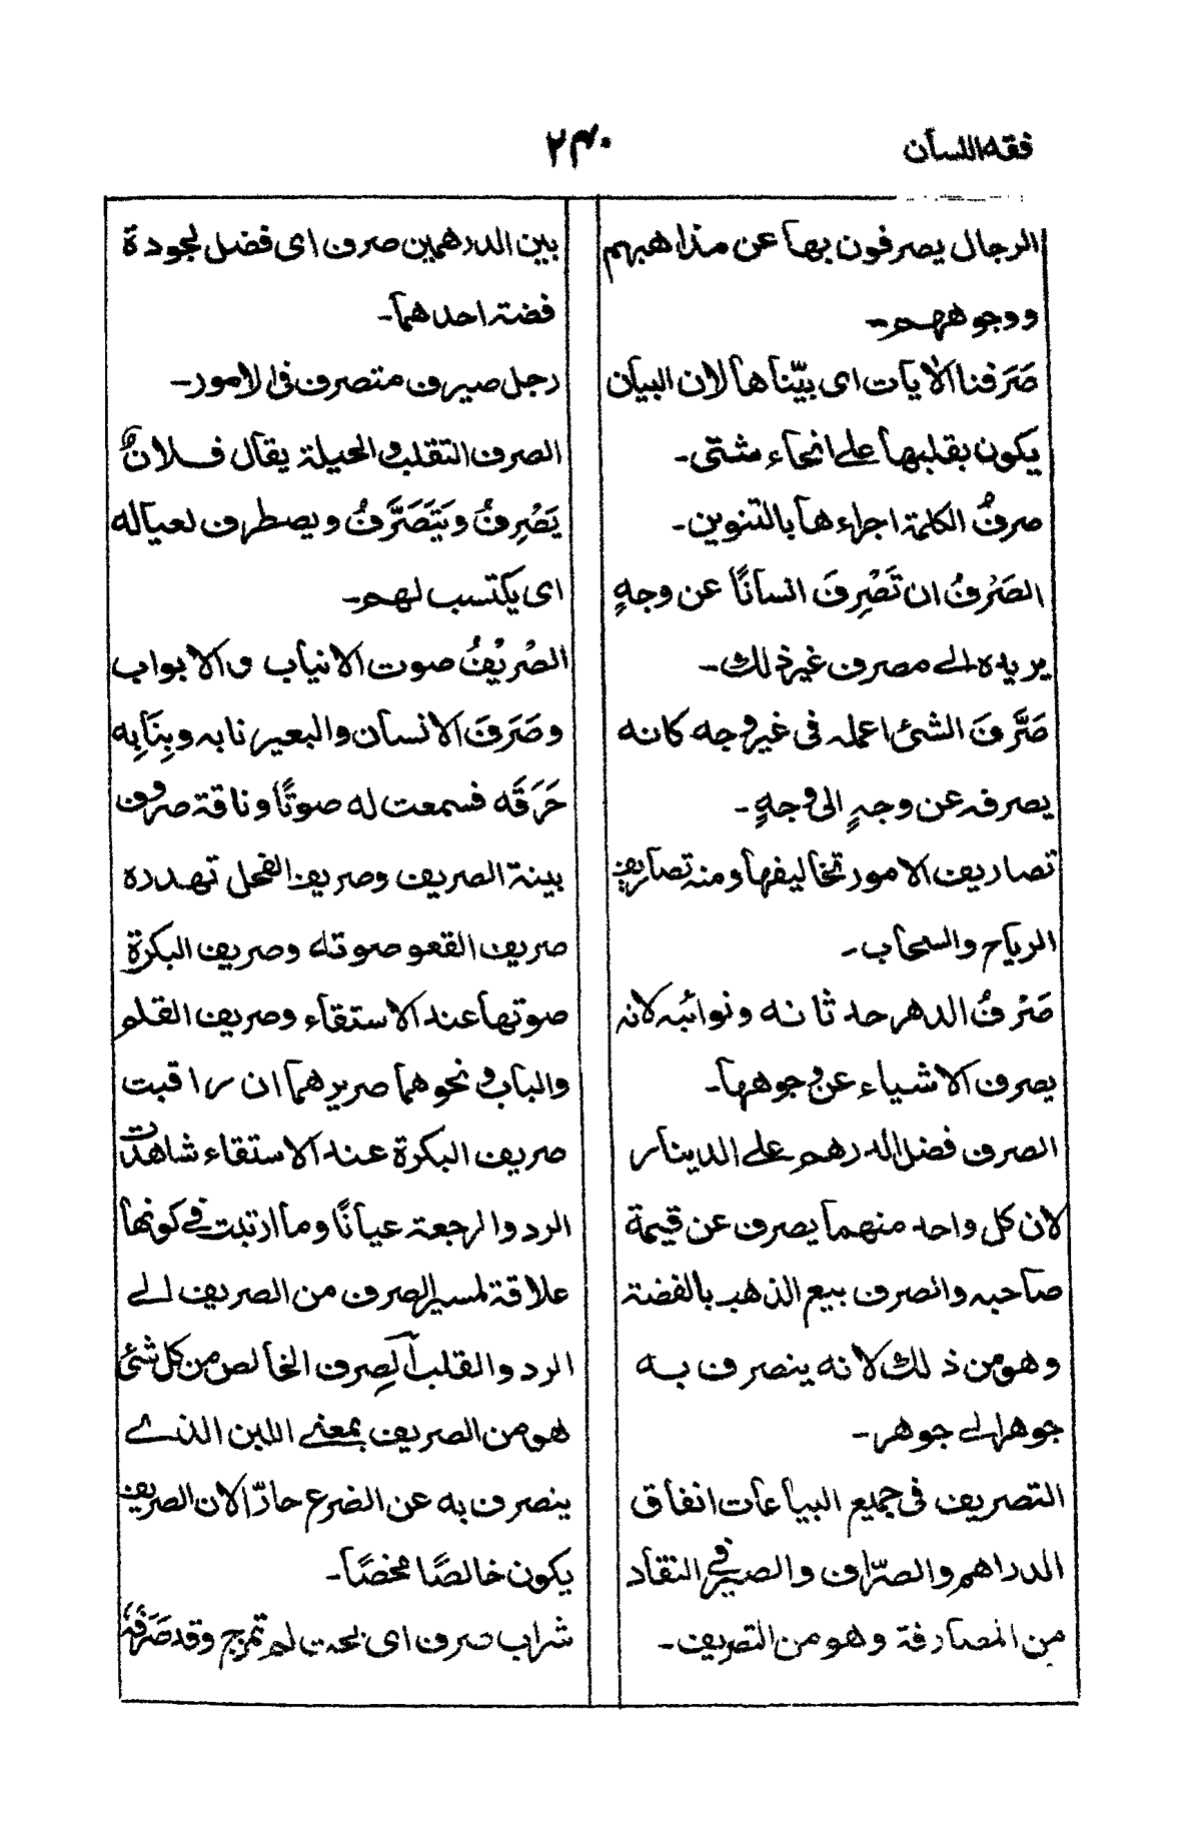 فقه اللسان
۲۴۰
الرجال يصرفون بها عن مذاهبهم
ووجوههم۔
صَرَفنا الاٰيات اى بيّناها لان البيان
يكون بقلبها على انحاء مشتى۔
صرفُ الكلمة اجراءها بالتنوين۔
الصَرْفُ ان تَصْرِفَ انسانًا عن وجهٍ
يريده الى مصرف غير ذلك۔
صَرَّفَ الشئ اعمله فى غير وجه كانه
يصرفه عن وجهٍ الى وجهٍ۔
تصاريف الامور تخاليفها ومنه تصاريف
الرياح والسحاب۔
صَرْفُ الدهر حدثانه ونوائبه لانه
يصرف الاشياء عن وجوهها۔
الصرف فضل الدرهم على الدينار
لان كل واحد منهما يصرف عن قيمة
صاحبه والصرف بيع الذهب بالفضة
وهو من ذلك لانه ينصرف به
جوهر الى جوهر۔
التصريف فى جميع البياعات انفاق
الدراهم والصرّاف والصيرفى النقاد
من المصارفة وهو من التصريف۔
بين الدرهمين صرف اى فضل لجودة
فضته احدهما۔
رجل صيرف متصرف فى الامور۔
الصرف التقلب والحيلة يقال فلانٌ
يَصْرِفُ ويَتَصَرَّفُ ويصطرف لعياله
اى يكتسب لهم۔
الصْرِيْفُ صوت الانياب والابواب
وصَرَفَ الانسان والبعير نابه وبِنَابِه
حَرَقَه فسمعت له صوتًا وناقة صروف
بينة الصريف وصريف الفحل تهدده
صريف القعو صوته وصريف البكرة
صوتها عند الاستقاء وصريف القلم
والباب ونحوهما صريرهما ان راقبت
صريف البكرة عند الاستقاء شاهدت
الرد والرجعة عيانًا وما ارتبت فى كونها
علاقة لمسير الصرف من الصريف الى
الرد والقلب الصِرف الخالص من كل شئ
هو من الصريف بمعنى اللبن الذى
ينصرف به عن الضرع حارّا لان الصريف
يكون خالصًا مخصًا۔
شراب صرف اى بحت لم تمرج وقد صَرَفَهٗ